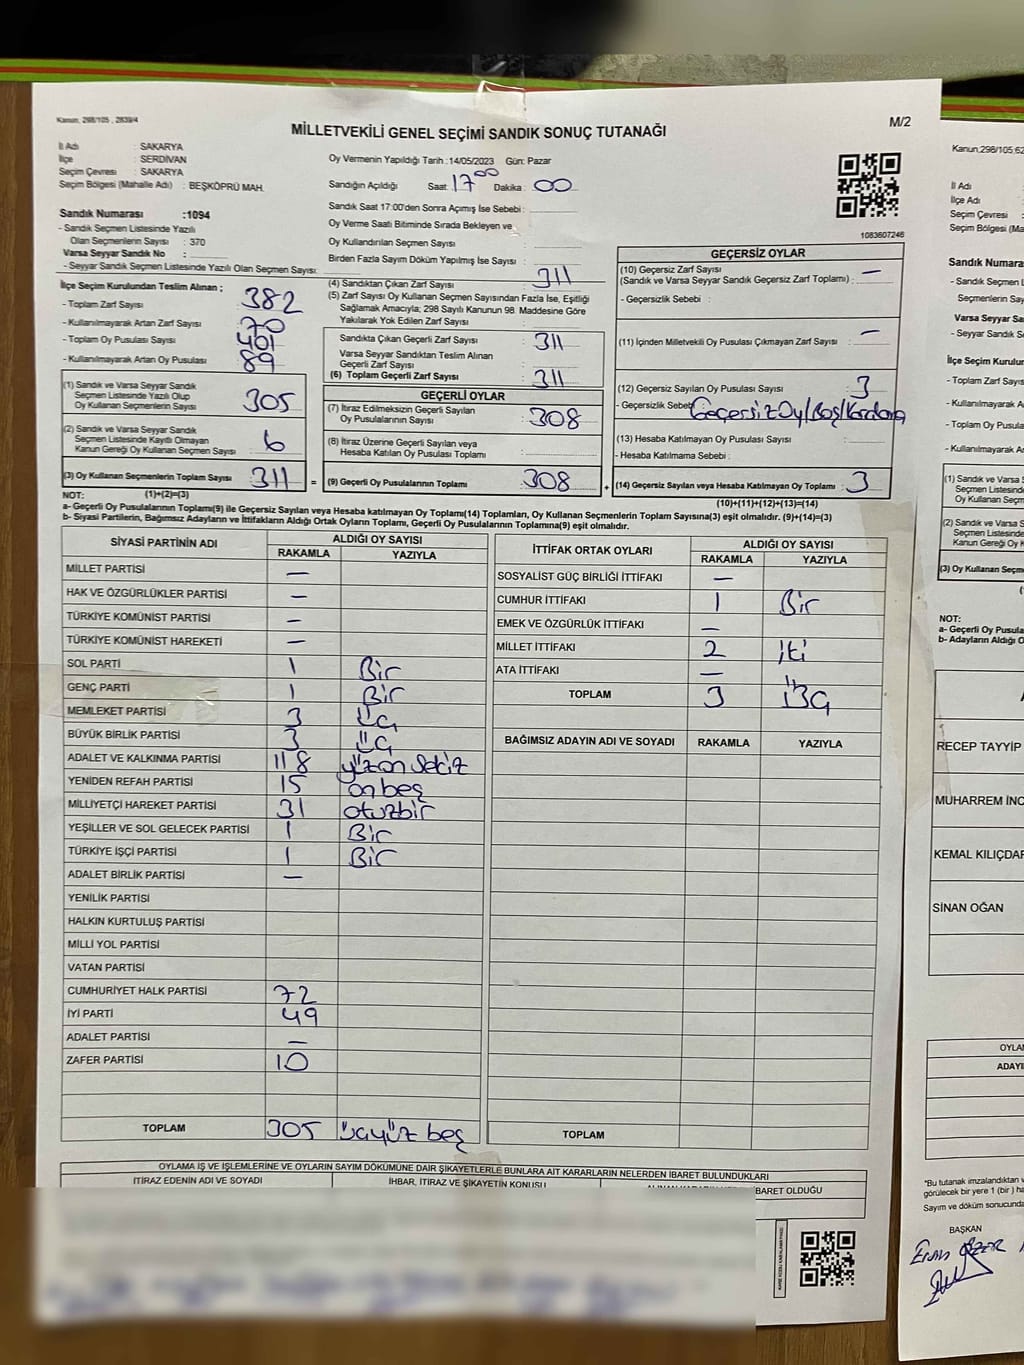 Kanun, 298/105 , 2839/4
MİLLETVEKİLİ GENEL SEÇİMİ SANDIK SONUÇ TUTANAĞI
M/2
İl Adı : SAKARYA
İlçe : SERDİVAN
Seçim Çevresi : SAKARYA
Seçim Bölgesi (Mahalle Adı) : BEŞKÖPRÜ MAH.
Oy Vermenin Yapıldığı Tarih :14/05/2023 Gün: Pazar
Sandığın Açıldığı Saat: 17 00 Dakika : 00
Sandık Saat 17:00'den Sonra Açımış İse Sebebi :
Oy Verme Saati Bitiminde Sırada Bekleyen ve
Oy Kullandırılan Seçmen Sayısı :
Birden Fazla Sayım Döküm Yapılmış İse Sayısı :
1083607246
Sandık Numarası :1094
- Sandık Seçmen Listesinde Yazılı
Olan Seçmenlerin Sayısı : 370
Varsa Seyyar Sandık No :
- Seyyar Sandık Seçmen Listesinde Yazılı Olan Seçmen Sayısı:
İlçe Seçim Kurulundan Teslim Alınan ;
- Toplam Zarf Sayısı : 382
- Kullanılmayarak Artan Zarf Sayısı : 70
- Toplam Oy Pusulası Sayısı : 401
- Kullanılmayarak Artan Oy Pusulası : 89
(1) Sandık ve Varsa Seyyar Sandık
Seçmen Listesinde Yazılı Olup
Oy Kullanan Seçmenlerin Sayısı : 305
(2) Sandık ve Varsa Seyyar Sandık
Seçmen Listesinde Kayıtlı Olmayan
Kanun Gereği Oy Kullanan Seçmen Sayısı : 6
(3) Oy Kullanan Seçmenlerin Toplam Sayısı : 311 =
(4) Sandıktan Çıkan Zarf Sayısı : 311
(5) Zarf Sayısı Oy Kullanan Seçmen Sayısından Fazla İse, Eşitliği
Sağlamak Amacıyla; 298 Sayılı Kanunun 98. Maddesine Göre
Yakılarak Yok Edilen Zarf Sayısı :
Sandıkta Çıkan Geçerli Zarf Sayısı : 311
Varsa Seyyar Sandıktan Teslim Alınan
Geçerli Zarf Sayısı :
(6) Toplam Geçerli Zarf Sayısı : 311
GEÇERLİ OYLAR
(7) İtiraz Edilmeksizin Geçerli Sayılan
Oy Pusulalarının Sayısı : 308
(8) İtiraz Üzerine Geçerli Sayılan veya
Hesaba Katılan Oy Pusulası Toplamı :
(9) Geçerli Oy Pusulalarının Toplamı : 308 +
GEÇERSİZ OYLAR
(10) Geçersiz Zarf Sayısı
(Sandık ve Varsa Seyyar Sandık Geçersiz Zarf Toplamı) : —
- Geçersizlik Sebebi :
(11) İçinden Milletvekili Oy Pusulası Çıkmayan Zarf Sayısı : —
(12) Geçersiz Sayılan Oy Pusulası Sayısı : 3
- Geçersizlik Sebebi Geçersiz Oy/Boş/Karalama
(13) Hesaba Katılmayan Oy Pusulası Sayısı :
- Hesaba Katılmama Sebebi :
(14) Geçersiz Sayılan veya Hesaba Katılmayan Oy Toplamı : 3
NOT: (1)+(2)=(3)
(10)+(11)+(12)+(13)=(14)
a- Geçerli Oy Pusulalarının Toplamı(9) ile Geçersiz Sayılan veya Hesaba katılmayan Oy Toplamı(14) Toplamları, Oy Kullanan Seçmenlerin Toplam Sayısına(3) eşit olmalıdır. (9)+(14)=(3)
b- Siyasi Partilerin, Bağımsız Adayların ve İttifakların Aldığı Ortak Oyların Toplamı, Geçerli Oy Pusulalarının Toplamına(9) eşit olmalıdır.
SİYASİ PARTİNİN ADI ALDIĞI OY SAYISI
RAKAMLA YAZIYLA
MİLLET PARTİSİ —
HAK VE ÖZGÜRLÜKLER PARTİSİ —
TÜRKİYE KOMÜNİST PARTİSİ —
TÜRKİYE KOMÜNİST HAREKETİ —
SOL PARTİ 1 Bir
GENÇ PARTİ 1 Bir
MEMLEKET PARTİSİ 3 Üç
BÜYÜK BİRLİK PARTİSİ 3 Üç
ADALET VE KALKINMA PARTİSİ 118 yüzonsekiz
YENİDEN REFAH PARTİSİ 15 onbeş
MİLLİYETÇİ HAREKET PARTİSİ 31 otuzbir
YEŞİLLER VE SOL GELECEK PARTİSİ 1 Bir
TÜRKİYE İŞÇİ PARTİSİ 1 Bir
ADALET BİRLİK PARTİSİ —
YENİLİK PARTİSİ
HALKIN KURTULUŞ PARTİSİ
MİLLİ YOL PARTİSİ
VATAN PARTİSİ
CUMHURİYET HALK PARTİSİ 72
İYİ PARTİ 49
ADALET PARTİSİ —
ZAFER PARTİSİ 10
TOPLAM 305 üçyüz beş
İTTİFAK ORTAK OYLARI ALDIĞI OY SAYISI
RAKAMLA YAZIYLA
SOSYALİST GÜÇ BİRLİĞİ İTTİFAKI —
CUMHUR İTTİFAKI 1 Bir
EMEK VE ÖZGÜRLÜK İTTİFAKI —
MİLLET İTTİFAKI 2 iki
ATA İTTİFAKI —
TOPLAM 3 üç
BAĞIMSIZ ADAYIN ADI VE SOYADI RAKAMLA YAZIYLA
TOPLAM
OYLAMA İŞ VE İŞLEMLERİNE VE OYLARIN SAYIM DÖKÜMÜNE DAİR ŞİKAYETLERLE BUNLARA AİT KARARLARIN NELERDEN İBARET BULUNDUKLARI
İTİRAZ EDENİN ADI VE SOYADI İHBAR, İTİRAZ VE ŞİKAYETİN KONUSU İBARET OLDUĞU
Kanun,298/105;62
İl Adı
İlçe Adı
Seçim Çevresi
Seçim Bölgesi (Ma
Sandık Numaras
- Sandık Seçmen L
Seçmenlerin Say
Varsa Seyyar San
- Seyyar Sandık Se
İlçe Seçim Kurulun
- Toplam Zarf Sayıs
- Kullanılmayarak A
- Toplam Oy Pusula
- Kullanılmayarak A
(1) Sandık ve Varsa
Seçmen Listesind
Oy Kullanan Seçm
(2) Sandık ve Varsa S
Seçmen Listesinde
Kanun Gereği Oy K
(3) Oy Kullanan Seçm
NOT:
a- Geçerli Oy Pusula
b- Adayların Aldığı O
RECEP TAYYİP
MUHARREM İNC
KEMAL KILIÇDAR
SİNAN OĞAN
OYLA
ADAYI
*Bu tutanak imzalandıktan v
görülecek bir yere 1 (bir ) ha
Sayım ve döküm sonucunda
BAŞKAN